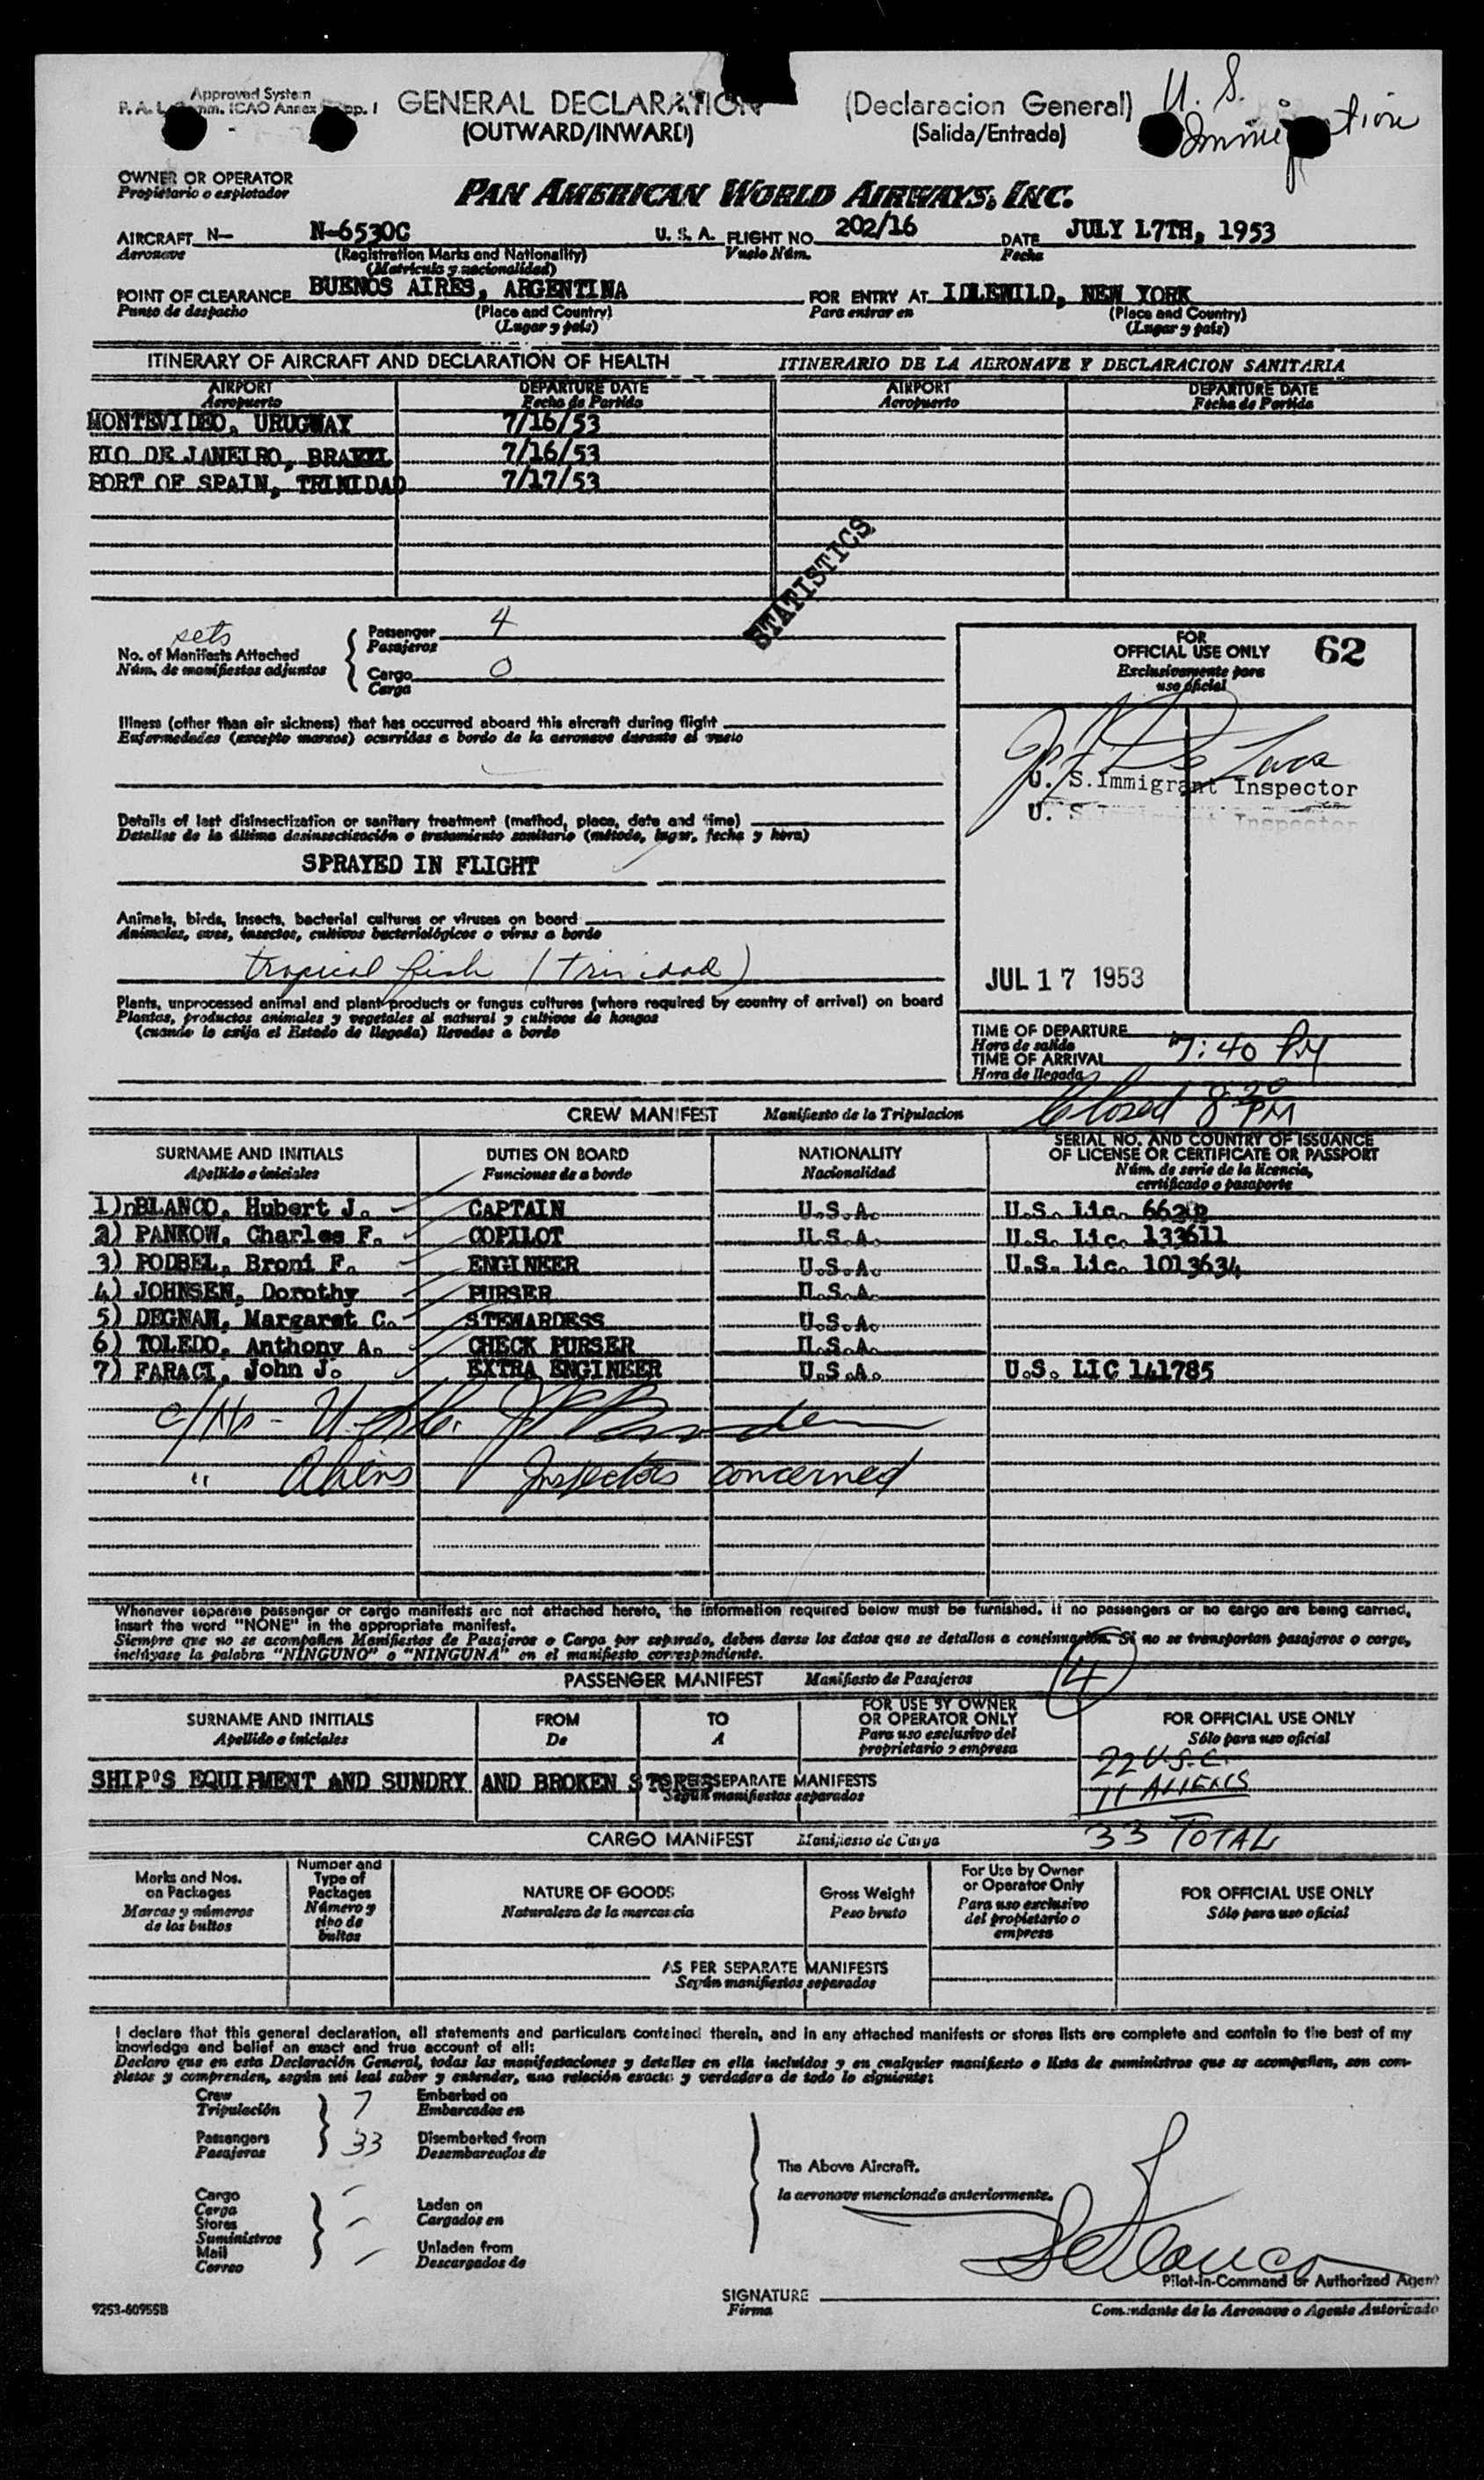 Approved System
GENERAL DECLARATION (Declaracion General) U. S.
(OUTWARD/INWARD) (Salida/Entrada)
OWNER OR OPERATOR
Propietario o explotador
PAN AMERICAN WORLD AIRWAYS, INC.
AIRCRAFT N- N-6530C U. S. A. FLIGHT NO. 202/16 DATE JULY 17TH, 1953
Aeronave (Registration Marks and Nationality) Vuelo Núm. Fecha
(Matricula y nacionalidad)
POINT OF CLEARANCE BUENOS AIRES, ARGENTINA FOR ENTRY AT IDLEWILD, NEW YORK
Punto de despacho (Place and Country) Para entrar en (Place and Country)
(Lugar y país) (Lugar y país)
ITINERARY OF AIRCRAFT AND DECLARATION OF HEALTH ITINERARIO DE LA AERONAVE Y DECLARACION SANITARIA
AIRPORT DEPARTURE DATE AIRPORT DEPARTURE DATE
Aeropuerto Fecha de Partida Aeropuerto Fecha de Partida
MONTEVIDEO, URUGUAY 7/16/53
RIO DE JANEIRO, BRAZIL 7/16/53
PORT OF SPAIN, TRINIDAD 7/17/53
STATISTICS
sets
No. of Manifests Attached
Núm. de manifiestos adjuntos
Passenger 4
Pasajeros
Cargo 0
Carga
FOR
OFFICIAL USE ONLY 62
Exclusivamente para
uso oficial
Illness (other than air sickness) that has occurred aboard this aircraft during flight
Enfermedades (excepto mareos) ocurridas a bordo de la aeronave durante el vuelo
U. S. Immigrant Inspector
U. S. Immigrant Inspector
Details of last disinsectization or sanitary treatment (method, place, date and time)
Detalles de la última desinsectización o tratamiento sanitario (método, lugar, fecha y hora)
SPRAYED IN FLIGHT
Animals, birds, insects, bacterial cultures or viruses on board
Animales, aves, insectos, cultivos bacteriológicos o virus a bordo
tropical fish (Trinidad)
JUL 17 1953
Plants, unprocessed animal and plant products or fungus cultures (where required by country of arrival) on board
Plantas, productos animales y vegetales al natural y cultivos de hongos
(cuando lo exija el Estado de llegada) llevados a bordo
TIME OF DEPARTURE
Hora de salida 7:40 PM
TIME OF ARRIVAL
Hora de llegada
Closed 8 30 PM
CREW MANIFEST Manifiesto de la Tripulacion
SURNAME AND INITIALS DUTIES ON BOARD NATIONALITY SERIAL NO. AND COUNTRY OF ISSUANCE
OF LICENSE OR CERTIFICATE OR PASSPORT
Apellido e iniciales Funciones de a bordo Nacionalidad Núm. de serie de la licencia,
certificado o pasaporte
1) BLANCO, Hubert J. CAPTAIN U.S.A. U.S. Lic.
2) PANKOW, Charles F. COPILOT U.S.A. U.S. Lic. 133611
3) PODBEL, Broni F. ENGINEER U.S.A. U.S. Lic. 1013634
4) JOHNSEN, Dorothy PURSER U.S.A.
5) DEGNAN, Margaret C. STEWARDESS U.S.A.
6) TOLEDO, Anthony A. CHECK PURSER U.S.A.
7) FARACI, John J. EXTRA ENGINEER U.S.A. U.S. LIC 141785
" Aliens Inspectors concerned
Whenever separate passenger or cargo manifests are not attached hereto, the information required below must be furnished. If no passengers or no cargo are being carried,
insert the word "NONE" in the appropriate manifest.
Siempre que no se acompañen Manifiestos de Pasajeros o Carga por separado, deben darse los datos que se detallan a continuación. Si no se transportan pasajeros o carga,
inclúyase la palabra "NINGUNO" o "NINGUNA" en el manifiesto correspondiente.
PASSENGER MANIFEST Manifiesto de Pasajeros 4
SURNAME AND INITIALS FROM TO FOR USE BY OWNER
OR OPERATOR ONLY FOR OFFICIAL USE ONLY
Apellido e iniciales De A Para uso exclusivo del
proprietario o empresa Sólo para uso oficial
22 U.S.C.
SHIP'S EQUIPMENT AND SUNDRY AND BROKEN STORES SEPARATE MANIFESTS 11 ALIENS
Según manifiestos separados
CARGO MANIFEST Manifiesto de Carga 33 TOTAL
Marks and Nos.
on Packages
Marcas y números
de los bultos
Number and
Type of
Packages
Número y
tipo de
bultos
NATURE OF GOODS
Naturaleza de la mercancia
Gross Weight
Peso bruto
For Use by Owner
or Operator Only
Para uso exclusivo
del propietario o
empresa
FOR OFFICIAL USE ONLY
Sólo para uso oficial
AS PER SEPARATE MANIFESTS
Según manifiestos separados
I declare that this general declaration, all statements and particulars contained therein, and in any attached manifests or stores lists are complete and contain to the best of my
knowledge and belief an exact and true account of all:
Declaro que en esta Declaración General, todas las manifestaciones y detalles en ella incluidos y en cualquier manifiesto o lista de suministros que se acompañen, son com-
pletos y comprenden, según mi leal saber y entender, una relación exacta y verdadera de todo lo siguiente:
Crew 7 Embarked on
Tripulación Embarcados en
Passengers 33 Disembarked from
Pasajeros Desembarcados de
The Above Aircraft.
la aeronave mencionada anteriormente.
Cargo
Carga
Stores
Suministros
Mail
Correo
Laden on
Cargados en
Unladen from
Descargados de
Pilot-in-Command or Authorized Agent
SIGNATURE
Firma Comandante de la Aeronave o Agente Autorizado
9253-60955B